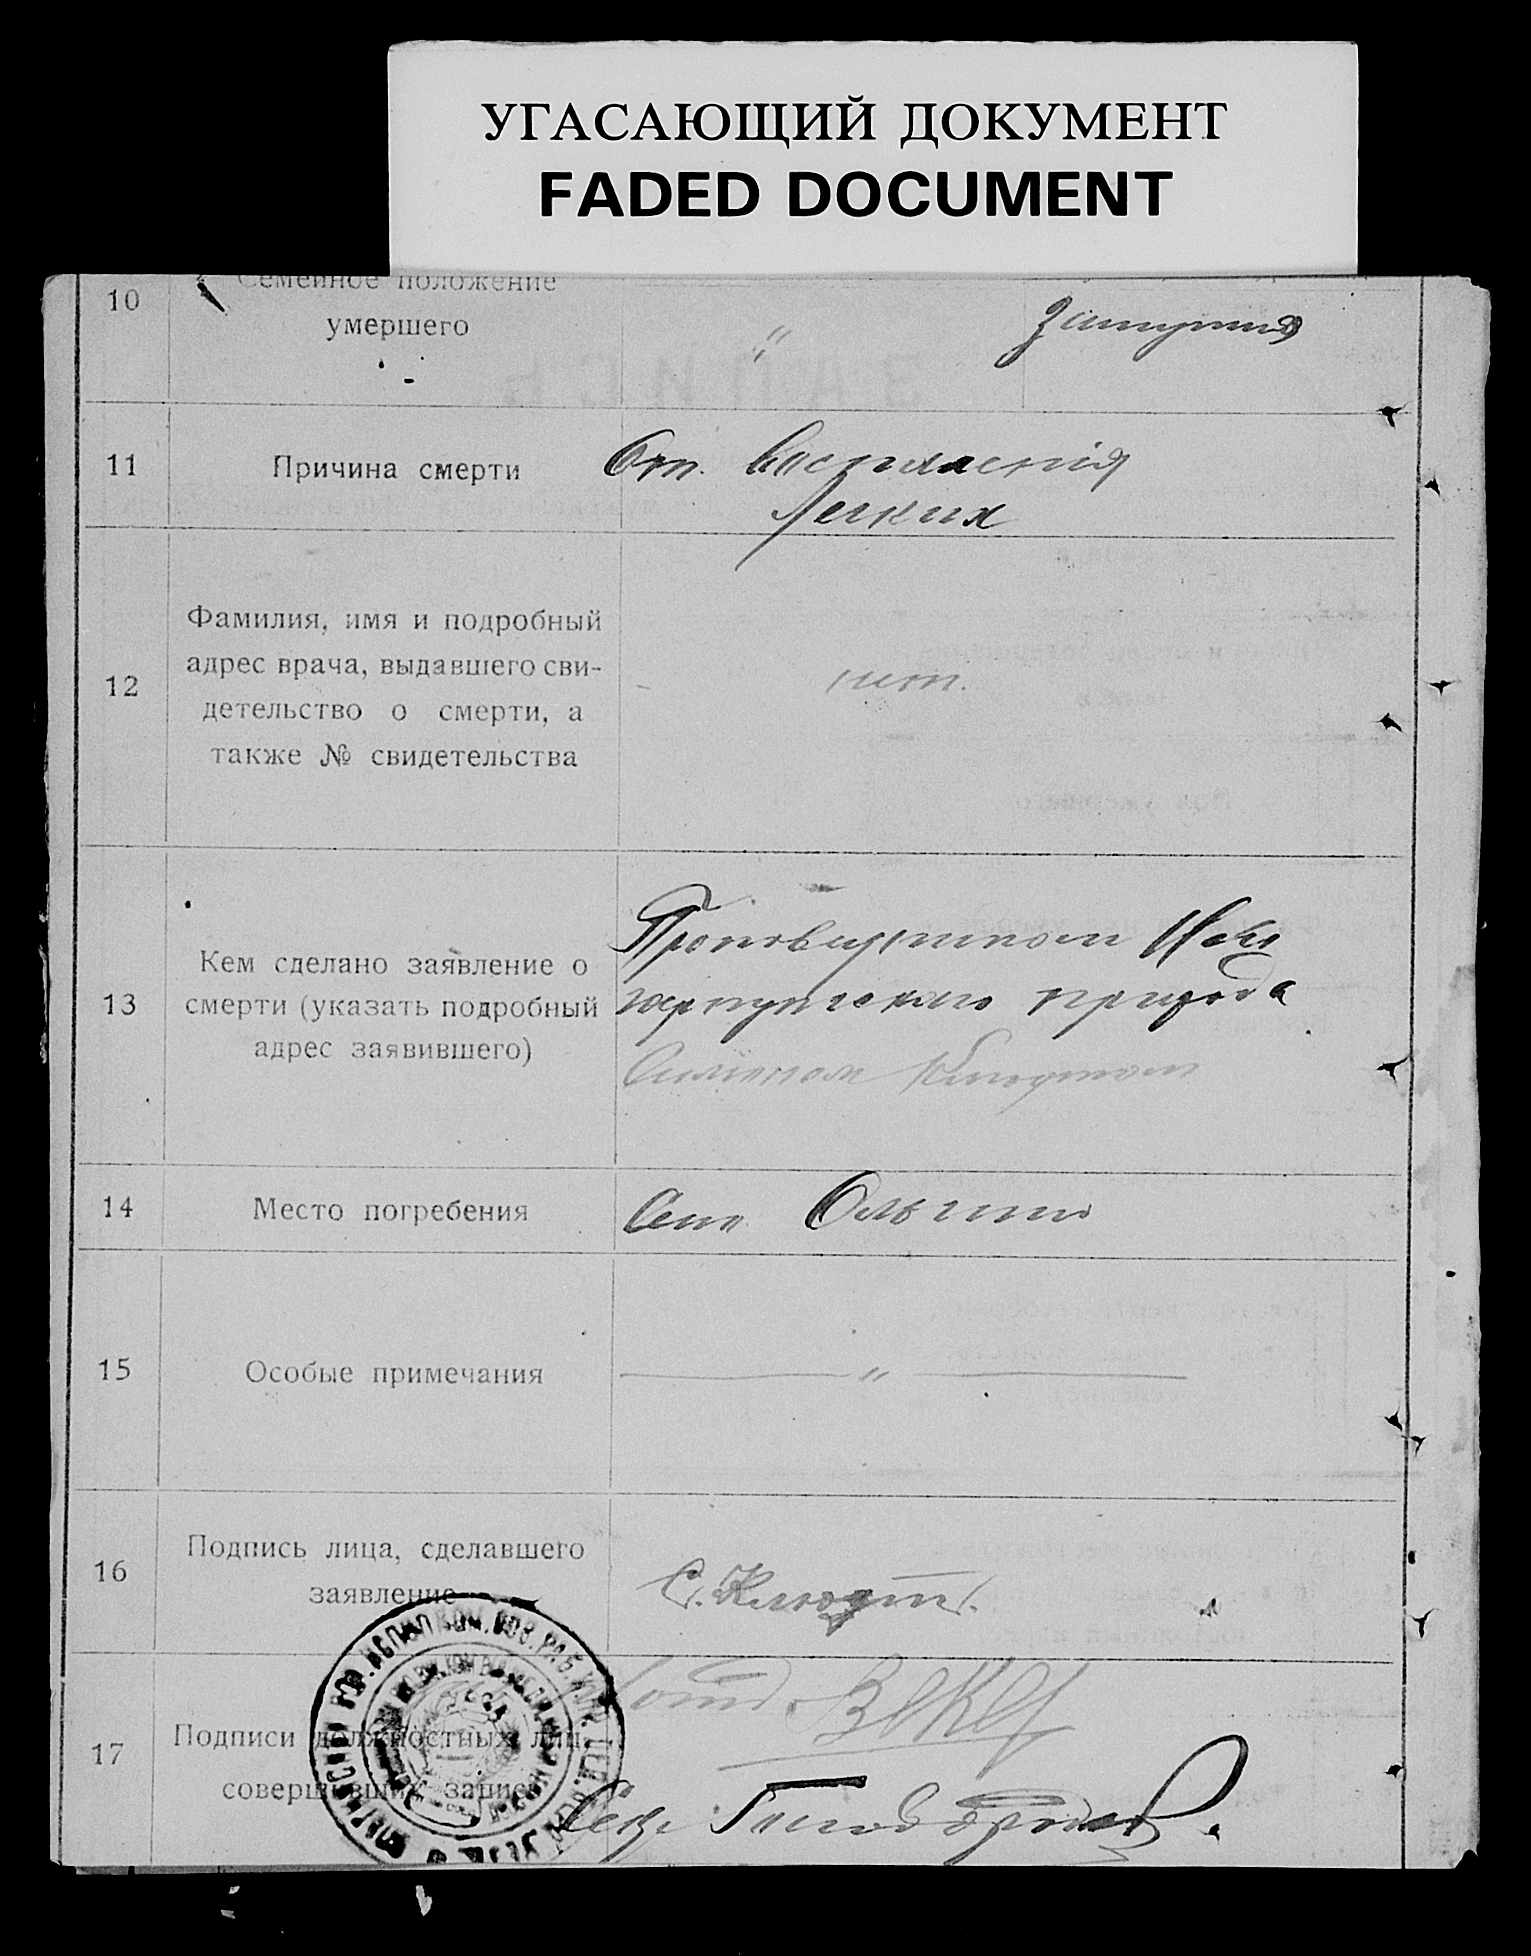 УГАСАЮЩИЙ ДОКУМЕНТ
FADED DOCUMENT
10
Семейное положение
умершего
"
11
Причина смерти
От. воспаленія
Легких
12
Фамилия, имя и подробный
адрес врача, выдавшего сви-
детельство о смерти, а
также № свидетельства
нет.
13
Кем сделано заявление о
смерти (указать подробный
адрес заявившего)
прихода
14
Место погребения
Село Ольгино
15
Особые примечания
"
16
Подпись лица, сделавшего
заявление
С. Клюдт.
17
Подписи должностных лиц,
совершивших запись